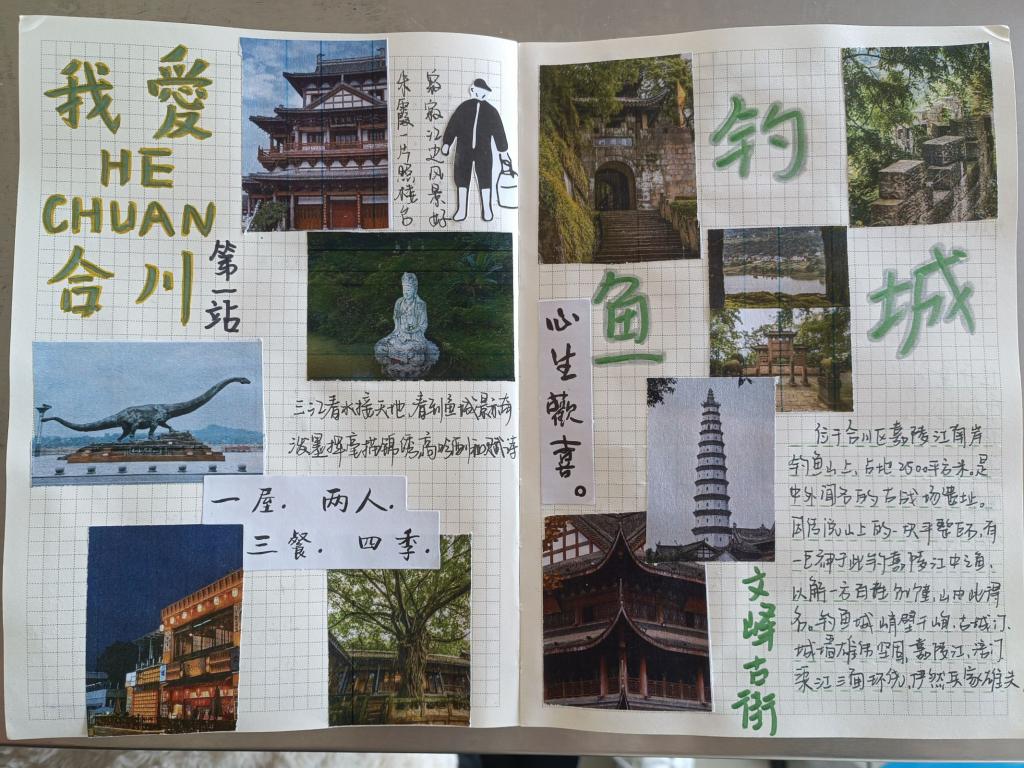 我愛
HE
CHUAN
合川
第一站
寂寂江边风景好
朱霞一片照楼台
三江春水接天地，看到鱼城景亦奇
泼墨挥毫描锦绣，高吟
一屋．两人．
三餐．四季．
钓
鱼
城
心生歡喜。
位于合川区嘉陵江南岸
钓鱼山上，占地2500平方米，是
中外闻名的古战场遗址。
因传说山上的一块平整巨石，有
一巨神于此钓嘉陵江中之鱼，
以解一方百姓饥馑，山由此得
名。钓鱼城峭壁千寻，古城门、
城墙雄伟坚固，嘉陵江、涪
渠江三面环绕，俨然兵家雄关
文峰古街